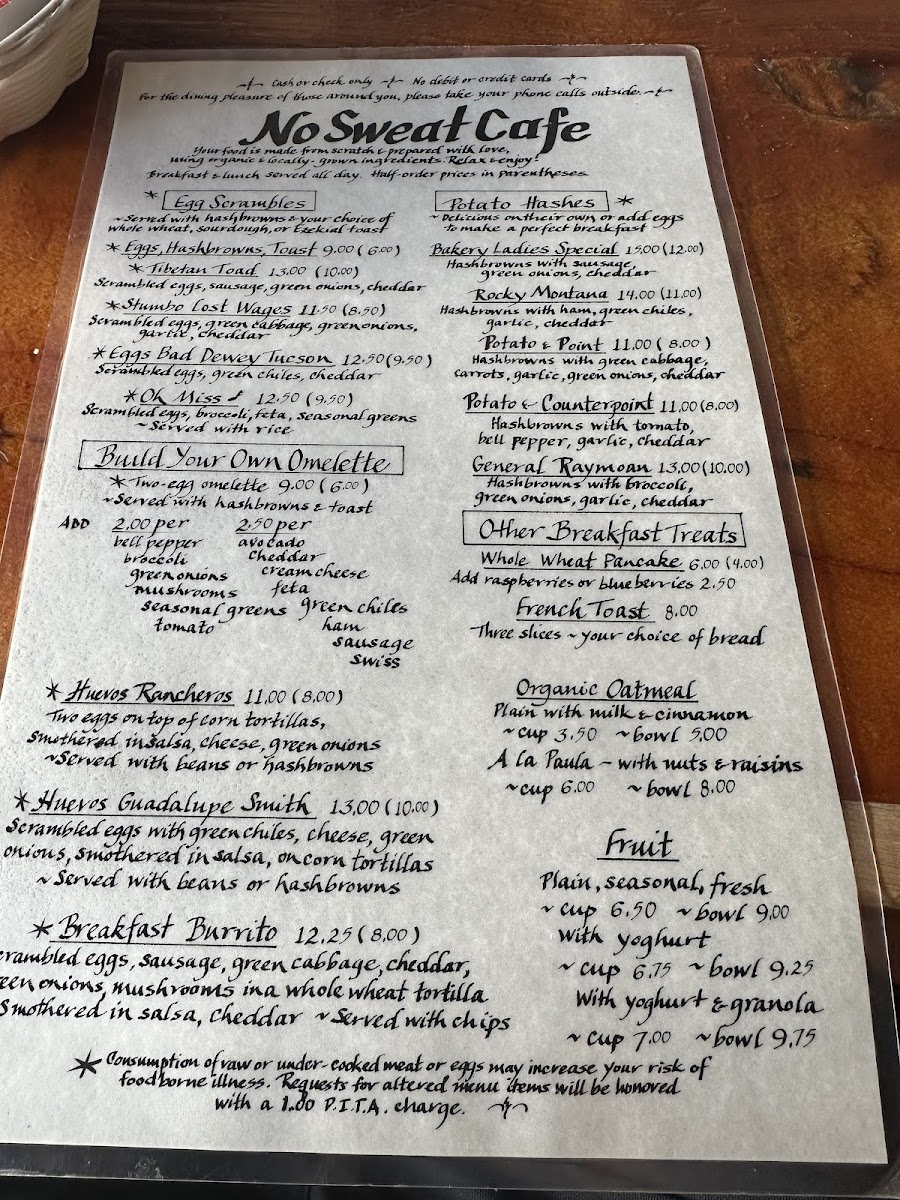 Cash or check only No debit or credit cards
For the dining pleasure of those around you, please take your phone calls outside.
No Sweat Cafe
Your food is made from scratch & prepared with love,
using organic & locally-grown ingredients. Relax & enjoy!
Breakfast & lunch served all day. Half-order prices in parentheses
* Egg Scrambles
~Served with hashbrowns & your choice of
whole wheat, sourdough, or Ezekial toast
* Eggs, Hashbrowns, Toast 9.00 (6.00)
* Tibetan Toad 13.00 (10.00)
Scrambled eggs, sausage, green onions, cheddar
* Stumbo Lost Wages 11.50 (8.50)
Scrambled eggs, green cabbage, green onions,
garlic, cheddar
* Eggs Bad Dewey Tucson 12.50 (9.50)
Scrambled eggs, green chiles, cheddar
* Oh Miss 12.50 (9.50)
Scrambled eggs, broccoli, feta, seasonal greens
~Served with rice
Build Your Own Omelette
* Two-egg omelette 9.00 (6.00)
~Served with hashbrowns & toast
ADD 2.00 per
bell pepper
broccoli
green onions
mushrooms
seasonal greens
tomato
2.50 per
avocado
cheddar
cream cheese
feta
green chiles
ham
sausage
swiss
* Huevos Rancheros 11.00 (8.00)
Two eggs on top of corn tortillas,
smothered in salsa, cheese, green onions
~Served with beans or hashbrowns
* Huevos Guadalupe Smith 13.00 (10.00)
Scrambled eggs with green chiles, cheese, green
onions, smothered in salsa, on corn tortillas
~ Served with beans or hashbrowns
* Breakfast Burrito 12.25 (8.00)
crambled eggs, sausage, green cabbage, cheddar,
een onions, mushrooms in a whole wheat tortilla
Smothered in salsa, cheddar ~Served with chips
Potato Hashes *
~Delicious on their own or add eggs
to make a perfect breakfast
Bakery Ladies Special 15.00 (12.00)
Hashbrowns with sausage,
green onions, cheddar
Rocky Montana 14.00 (11.00)
Hashbrowns with ham, green chiles,
garlic, cheddar
Potato & Point 11.00 (8.00)
Hashbrowns with green cabbage,
carrots, garlic, green onions, cheddar
Potato & Counterpoint 11.00 (8.00)
Hashbrowns with tomato,
bell pepper, garlic, cheddar
General Raymoan 13.00 (10.00)
Hashbrowns with broccoli,
green onions, garlic, cheddar
Other Breakfast Treats
Whole Wheat Pancake 6.00 (4.00)
Add raspberries or blueberries 2.50
French Toast 8.00
Three slices ~ your choice of bread
Organic Oatmeal
Plain with milk & cinnamon
~cup 3.50 ~bowl 5.00
A la Paula – with nuts & raisins
~cup 6.00 ~bowl 8.00
Fruit
Plain, seasonal, fresh
~ cup 6.50 ~bowl 9.00
With yoghurt
~ cup 6.75 ~bowl 9.25
With yoghurt & granola
~ cup 7.00 ~bowl 9.75
* Consumption of raw or under-cooked meat or eggs may increase your risk of
foodborne illness. Requests for altered menu items will be honored
with a 1.00 P.I.T.A. charge.